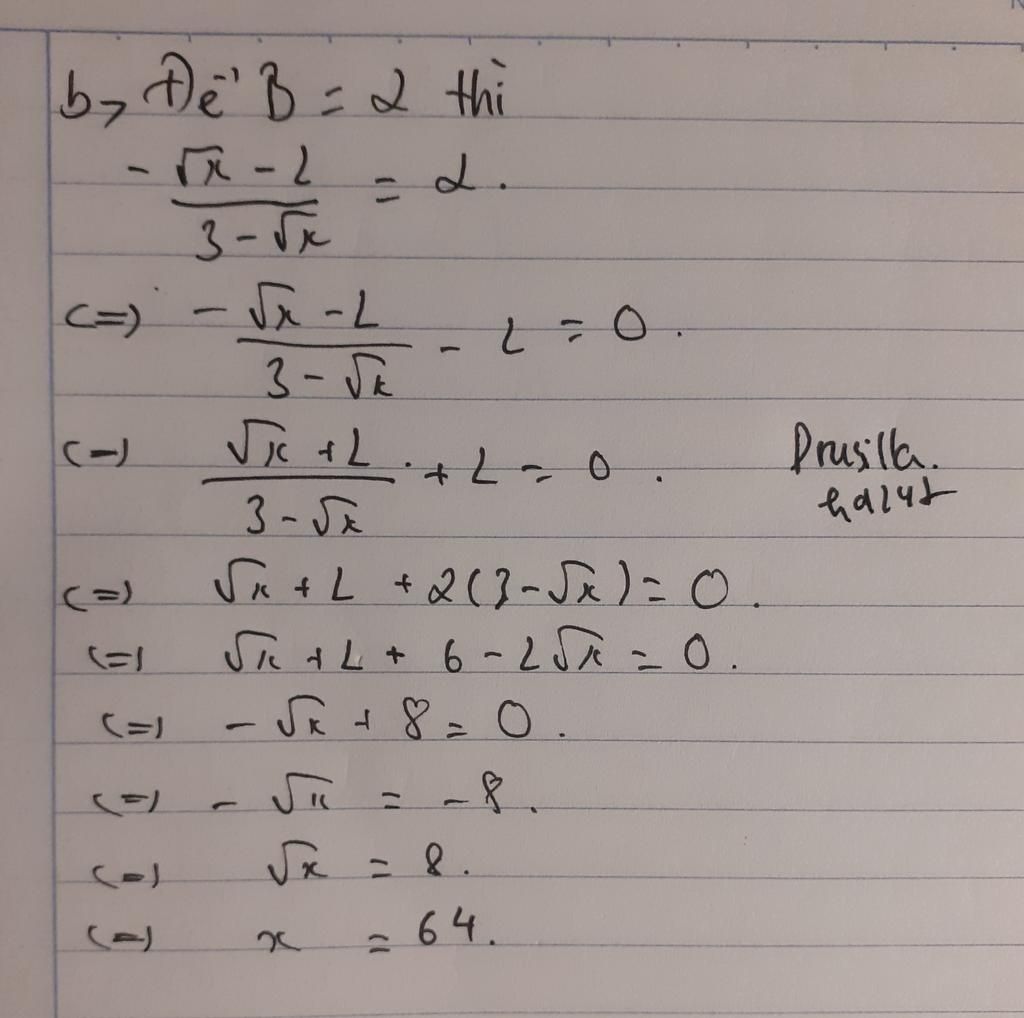 b, Để B = 2 thì
(-√x - 2)/(3 - √x) = 2.
<=> (-√x - 2)/(3 - √x) - 2 = 0.
<=> (√x + 2)/(3 - √x) + 2 = 0.
Drusilla.
<=> √x + 2 + 2(3 - √x) = 0.
<=> √x + 2 + 6 - 2√x = 0.
<=> -√x + 8 = 0.
<=> -√x = -8.
<=> √x = 8.
<=> x = 64.